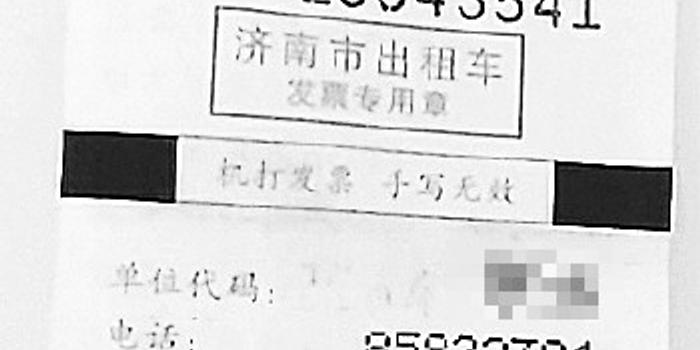 济南市出租车
发票专用章
机打发票 手写无效
单位代码:
电话: